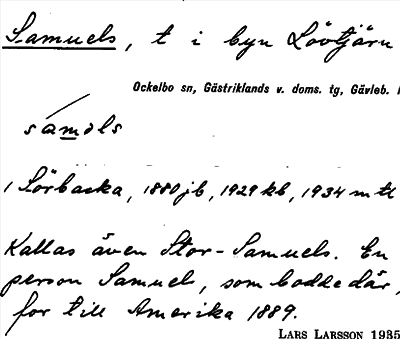 Samuels, t i byn Lövtjärn
Ockelbo sn, Gästriklands v. doms. tg, Gävleb. l
sámo̱ls
1 Sörbacka, 1880 jb, 1929 kb, 1934 mtl
Kallas även Stor-Samuels. En
person Samuels, som bodde där,
for till Amerika 1889.
LARS LARSSON 1935